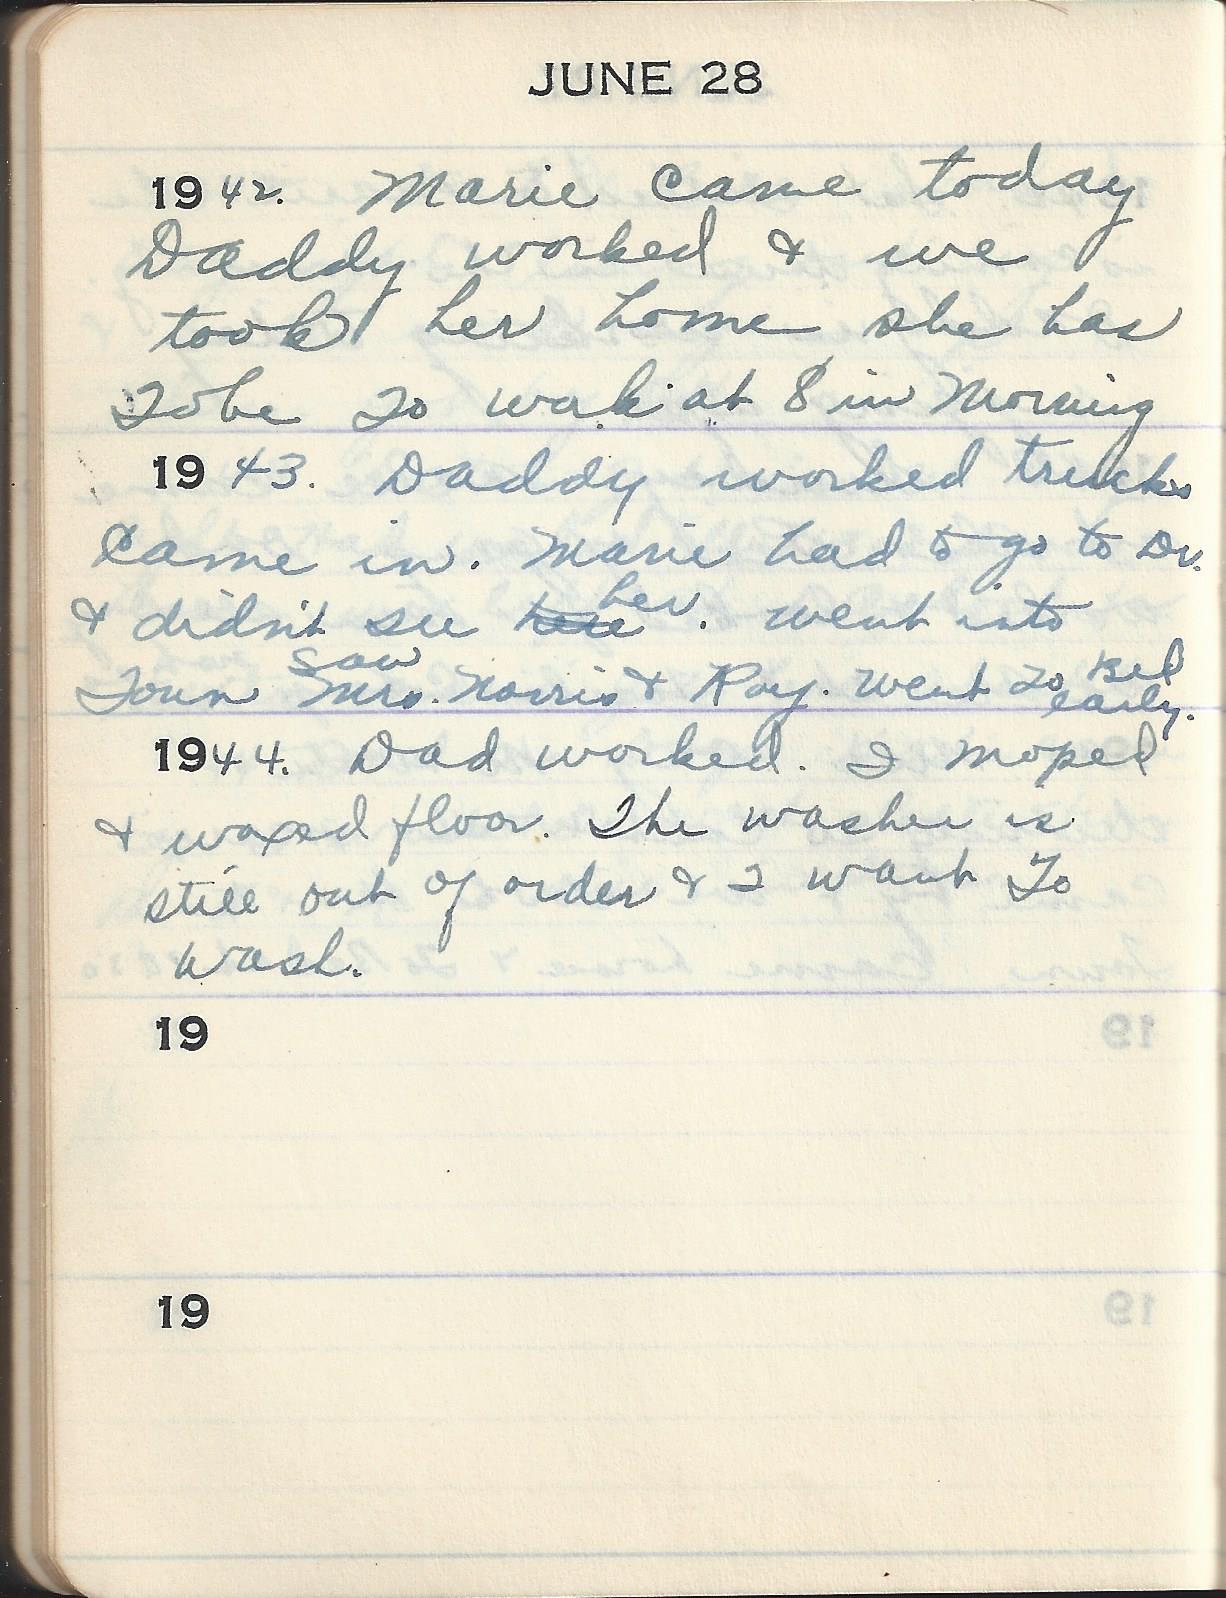 JUNE 28
1942. Marie came today
Daddy worked & we
took her home she has
to be to work at 8 in Morning
1943. Daddy worked trucks
came in. Marie had to go to Dr.
& didn't see here her. went into
Town saw Mrs. Norris & Ray. went to Bed early.
1944. Dad worked. I moped
& waxed floor. The washer is
still out of order & I want to
wash.
19
19